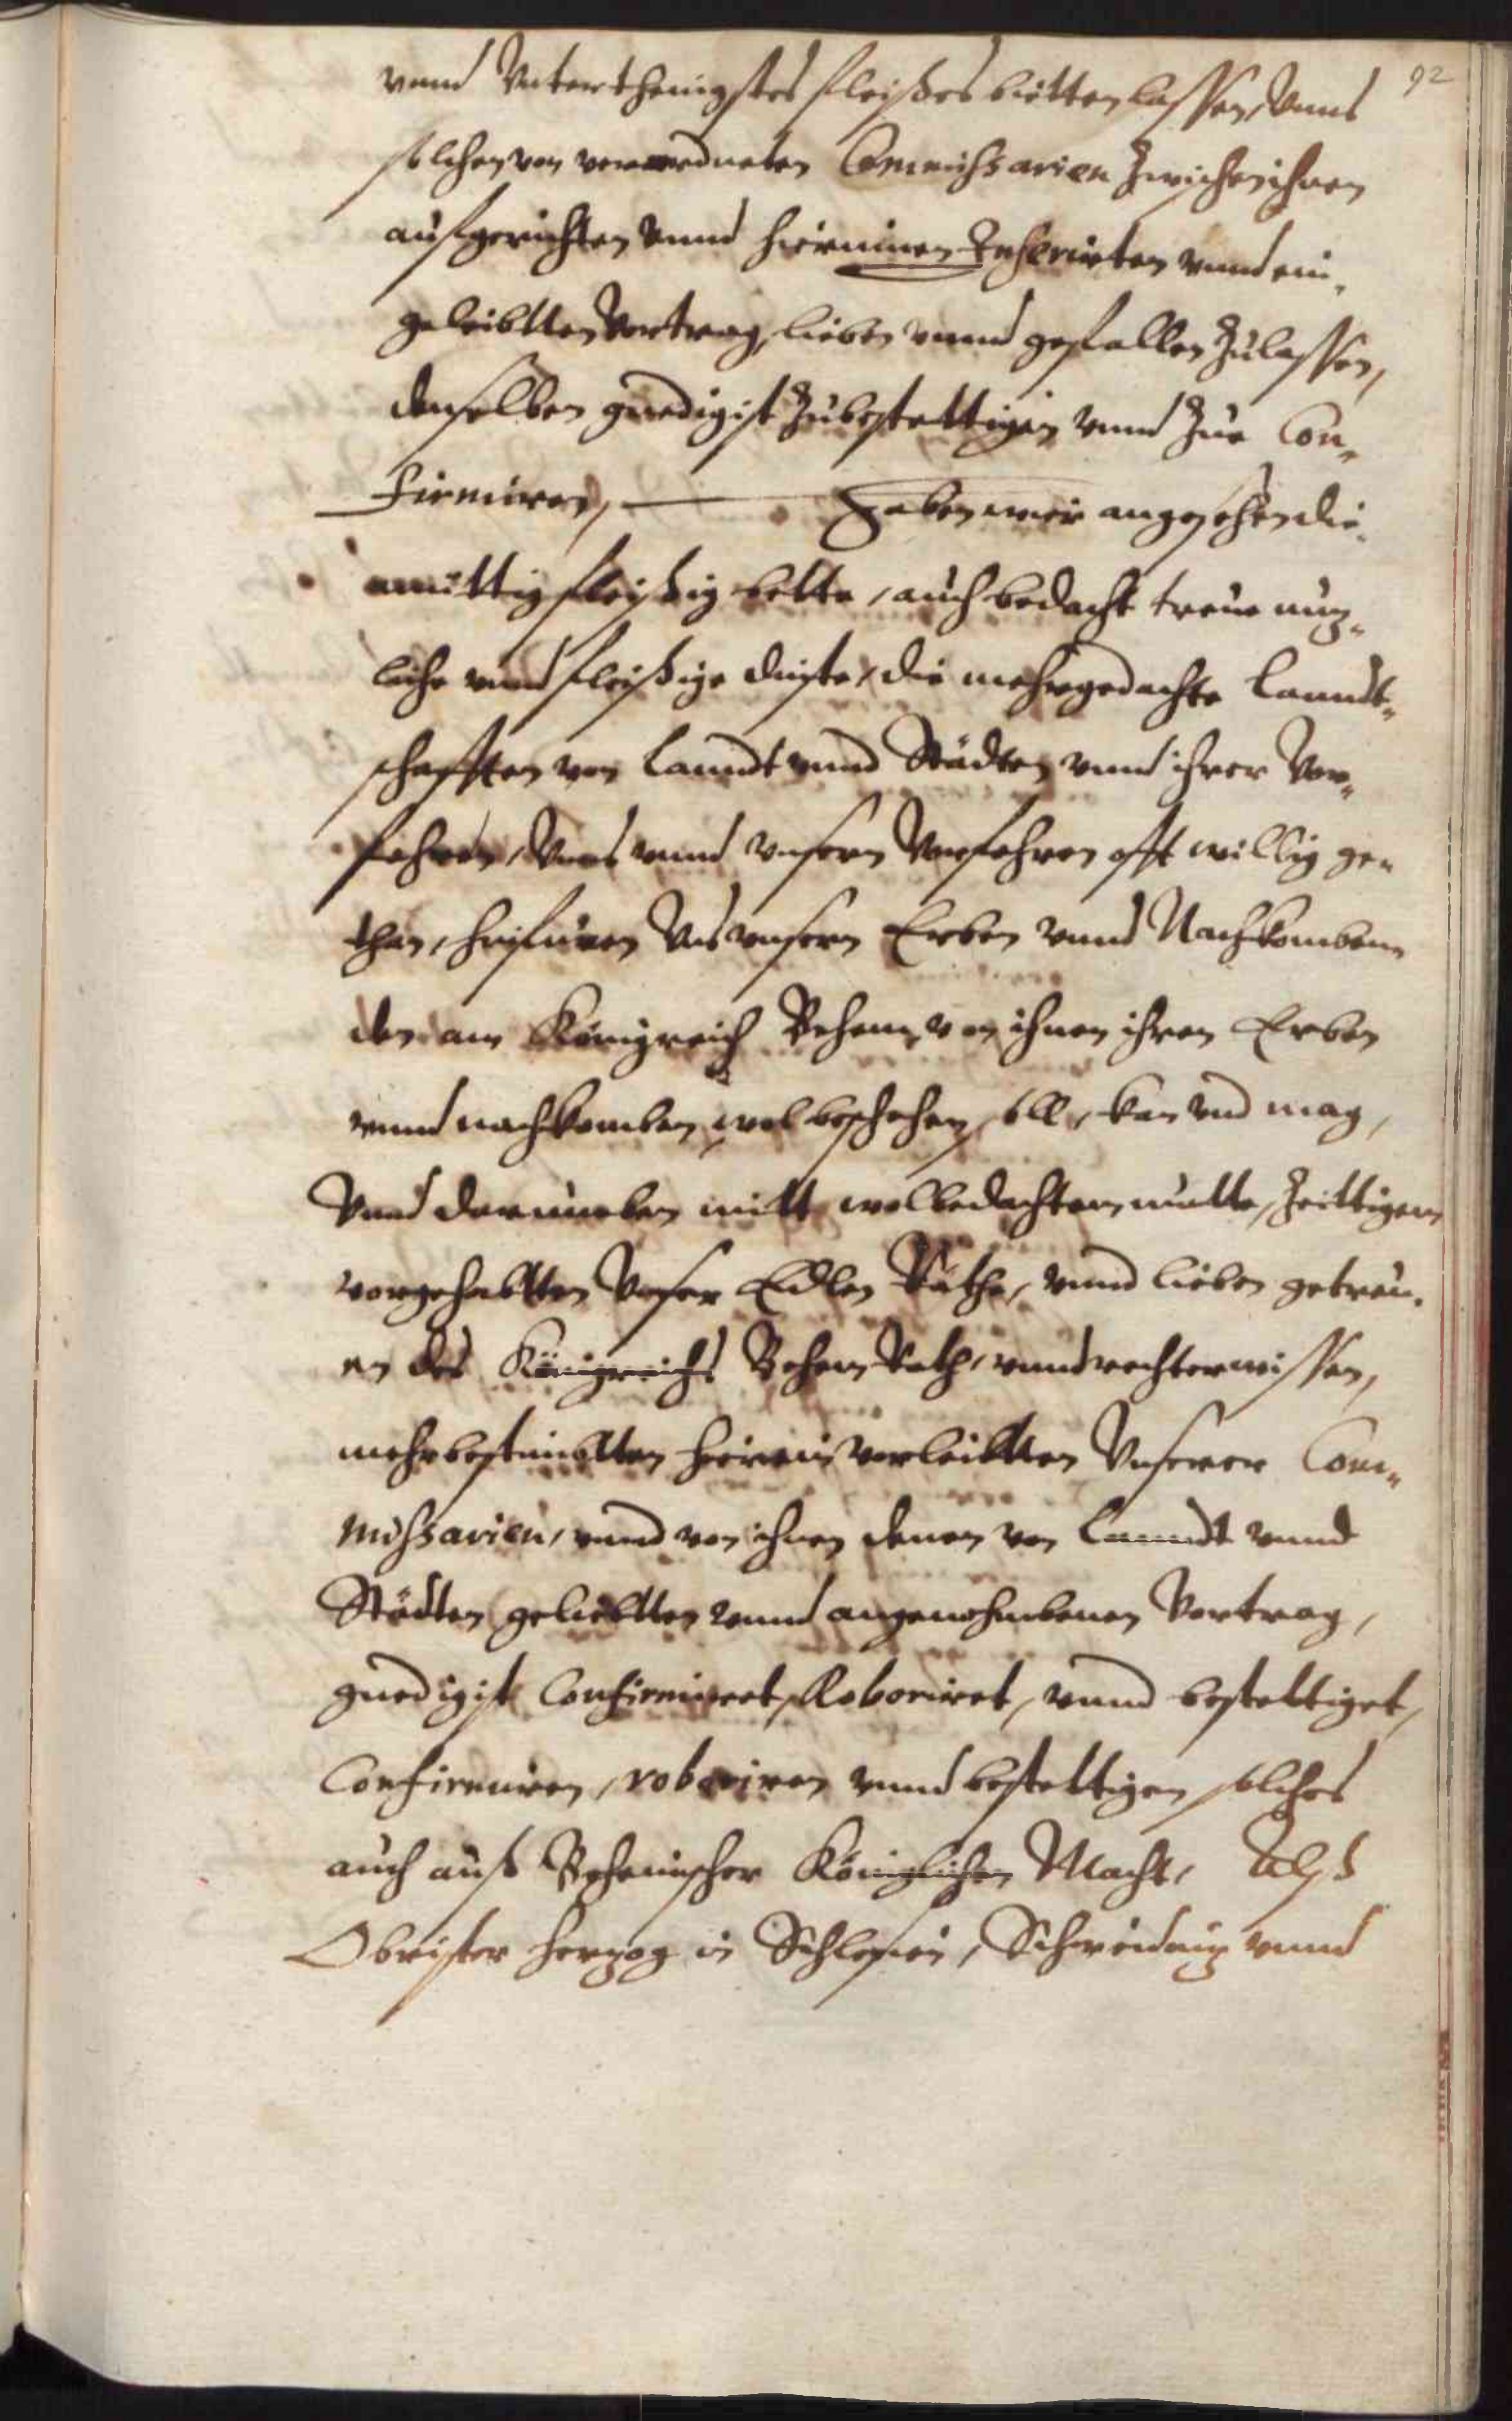 92
vnnd Vnterthenigstes fleißes bietten lassen, Vnns
solchen von verordneten Commissarien Zwischen ihnen
aufgerichten vnnd hierinnen Inserirten vnnd ein„
geleibtten Vertrag, lieben vnnd gefallen Zulassen,
denselben gnedigist Zubestettigen vnnd Zue Con„
firmiren, Haben wir angesehen die
müttig fleißig bitte, auch bedacht treue nutz„
liche vnnd fleißige dinste, die mehrgedachte Lanndt„
schafften von Lanndt vnnd Städten vnnd ihrer Vor„
fahren, Vnns vnnd vnsern Vorfahren offt willig ge„
than, hinfüren Vns vnsern Erben vnnd Nachkomben„
den am Königreich Behem, von ihnen ihren Erben
vnnd nachkomben, wol beschehen, soll, kan vnd mag,
Vnnd darumben mitt wolbedachtem mutte, Zeittigem
vorgehabtten Vnser Edlen Räthe, vnnd lieben getreu„
en des Königreichs Behem Rath, vnnd rechter wissen,
mehrbestimbtten hierein verleibtten Vnserer Com„
missarien, vnnd von ihnen denen von Lanndt vnnd
Städten geliebtten vnnd angenohmbenen Vertrag,
gnedigist Confirmiret, Roboriret, vnnd bestettiget,
Confirmiren, roboriren vnnd bestettigen solches
auch auß Behemischer Königlichen Macht, Alß
Obrister Hertzog in Schlesien, Schweidnitz vnnd